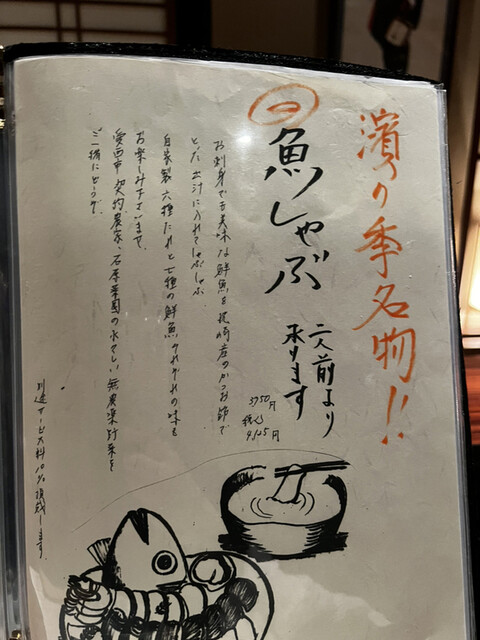 濱の季名物!!
一 魚しゃぶ
二人前より
承ります
税込
お刺身でも美味な鮮魚を枕崎産のかつお節で
とった出汁に入れてしゃぶしゃぶ
自家製六種たれと七種の鮮魚のそれぞれの味を
お楽しみ下さいませ。
愛西市契約農家、石原菜園の水々しい無農薬野菜を
ご一緒にどうぞ。
別途サービス料10%頂戴します